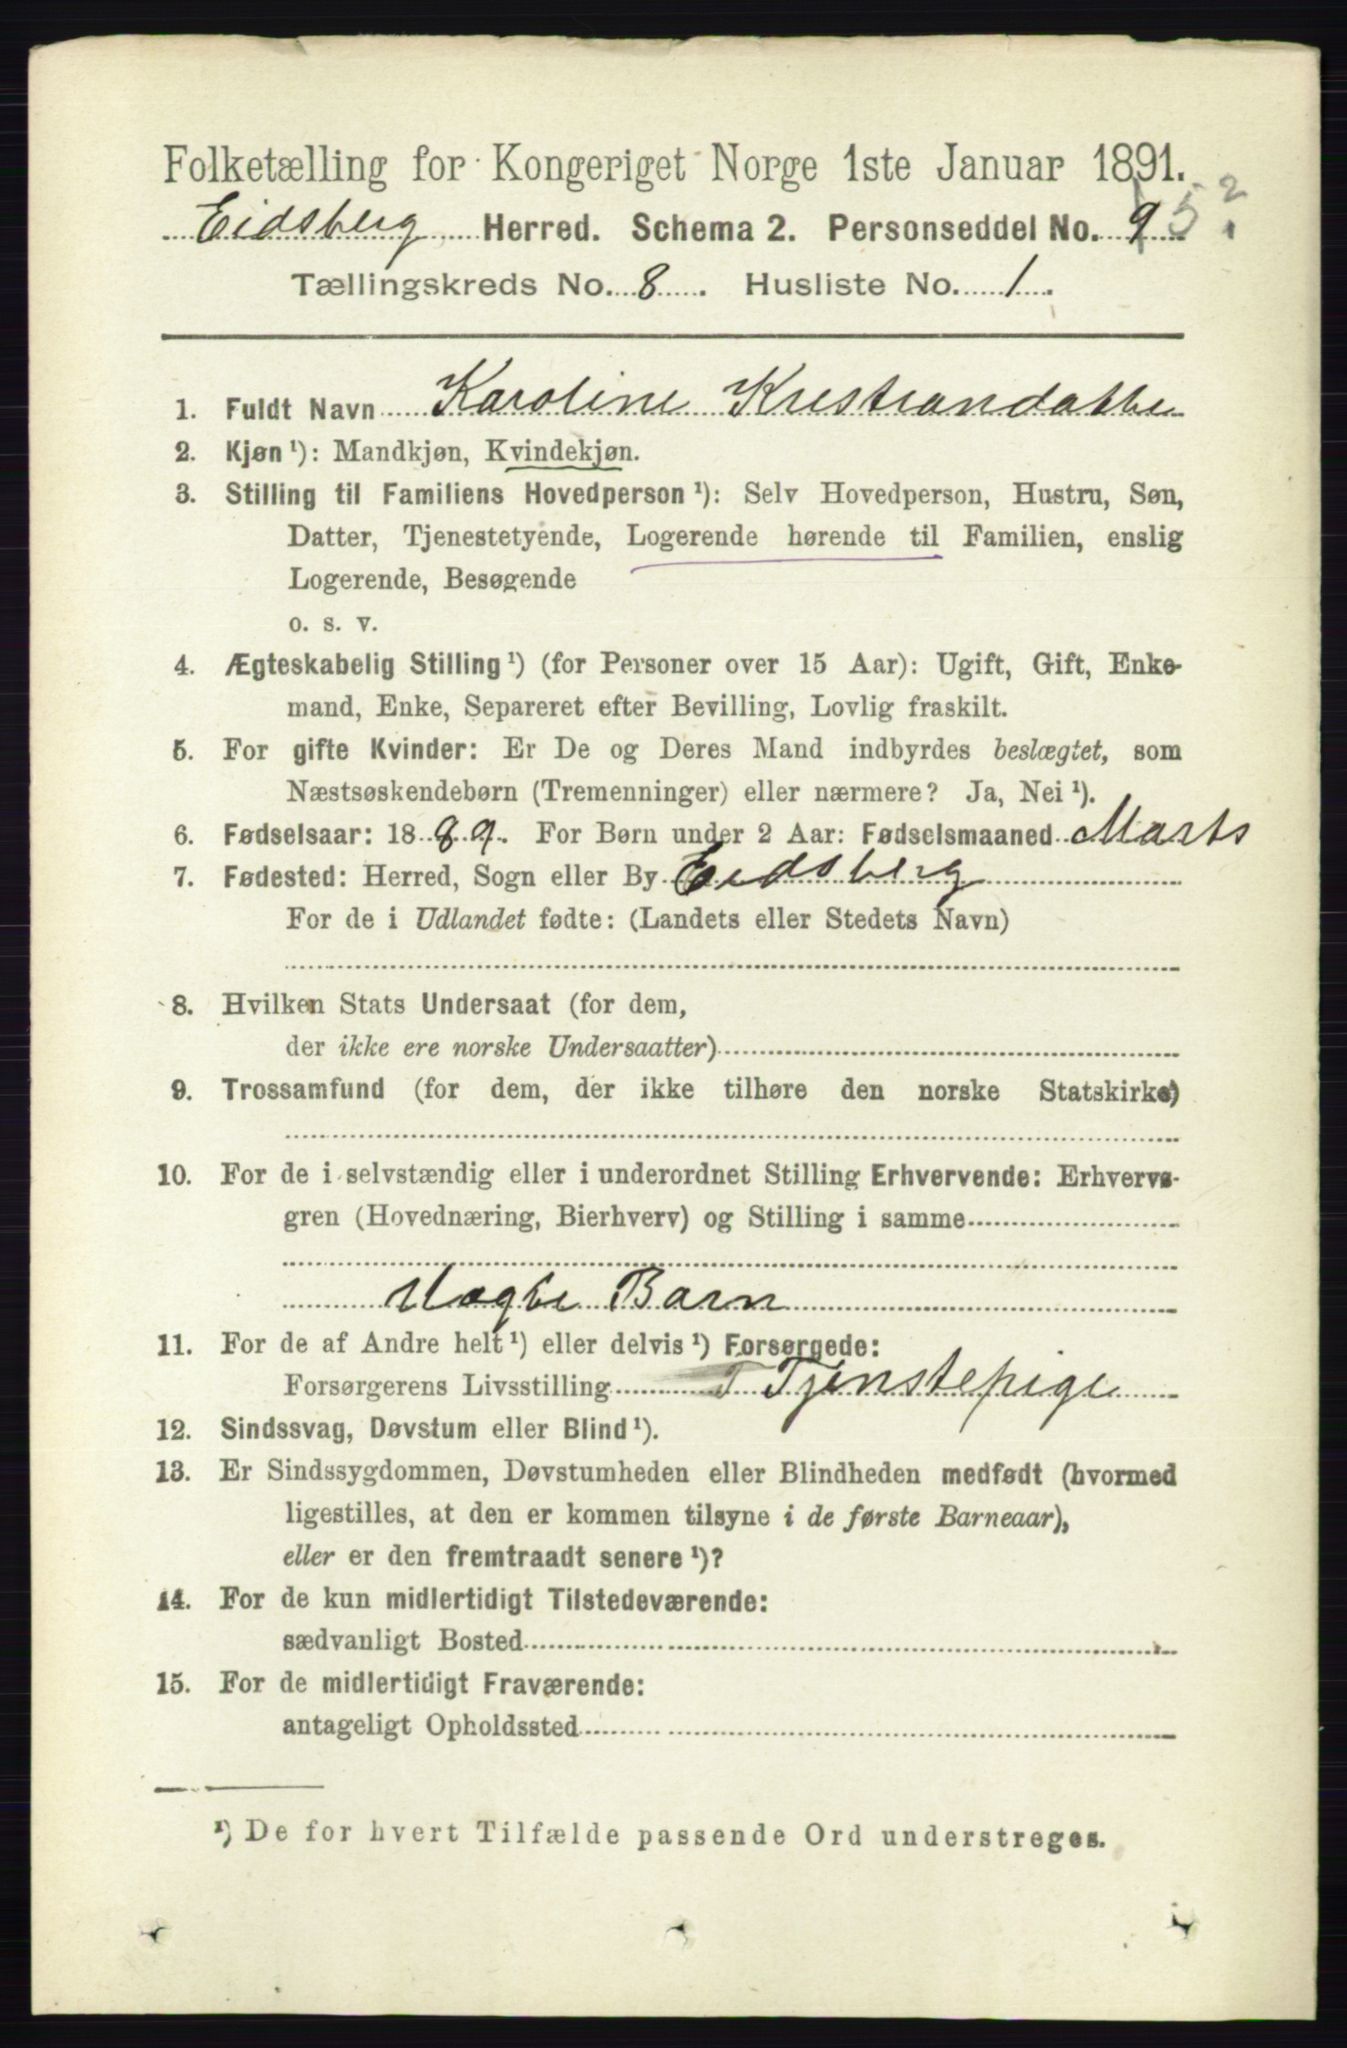 Folketælling for Kongeriget Norge 1ste Januar 1891.
Eidsberg Herred. Schema 2. Personseddel No. 9 5?
Tællingskreds No. 8. Husliste No. 1.
1. Fuldt Navn Karoline Kristiandatter
2. Kjøn ¹): Mandkjøn, Kvindekjøn.
3. Stilling til Familiens Hovedperson ¹): Selv Hovedperson, Hustru, Søn,
Datter, Tjenestetyende, Logerende hørende til Familien, enslig
Logerende, Besøgende
o. s. v.
4. Ægteskabelig Stilling ¹) (for Personer over 15 Aar): Ugift, Gift, Enke-
mand, Enke, Separeret efter Bevilling, Lovlig fraskilt.
5. For gifte Kvinder: Er De og Deres Mand indbyrdes beslægtet, som
Næstsøskendebørn (Tremenninger) eller nærmere? Ja, Nei ¹).
6. Fødselsaar: 1889. For Børn under 2 Aar: Fødselsmaaned Marts
7. Fødested: Herred, Sogn eller By Eidsberg
For de i Udlandet fødte: (Landets eller Stedets Navn)
8. Hvilken Stats Undersaat (for dem,
der ikke ere norske Undersaatter)
9. Trossamfund (for dem, der ikke tilhøre den norske Statskirke)
10. For de i selvstændig eller i underordnet Stilling Erhvervende: Erhvervs-
gren (Hovednæring, Bierhverv) og Stilling i samme
Uægte Barn
11. For de af Andre helt ¹) eller delvis ¹) Forsørgede:
Forsørgerens Livsstilling T Tjenstepige
12. Sindssvag, Døvstum eller Blind ¹).
13. Er Sindssygdommen, Døvstumheden eller Blindheden medfødt (hvormed
ligestilles, at den er kommen tilsyne i de første Barneaar),
eller er den fremtraadt senere ¹)?
14. For de kun midlertidigt Tilstedeværende:
sædvanligt Bosted
15. For de midlertidigt Fraværende:
antageligt Opholdssted
¹) De for hvert Tilfælde passende Ord understreges.